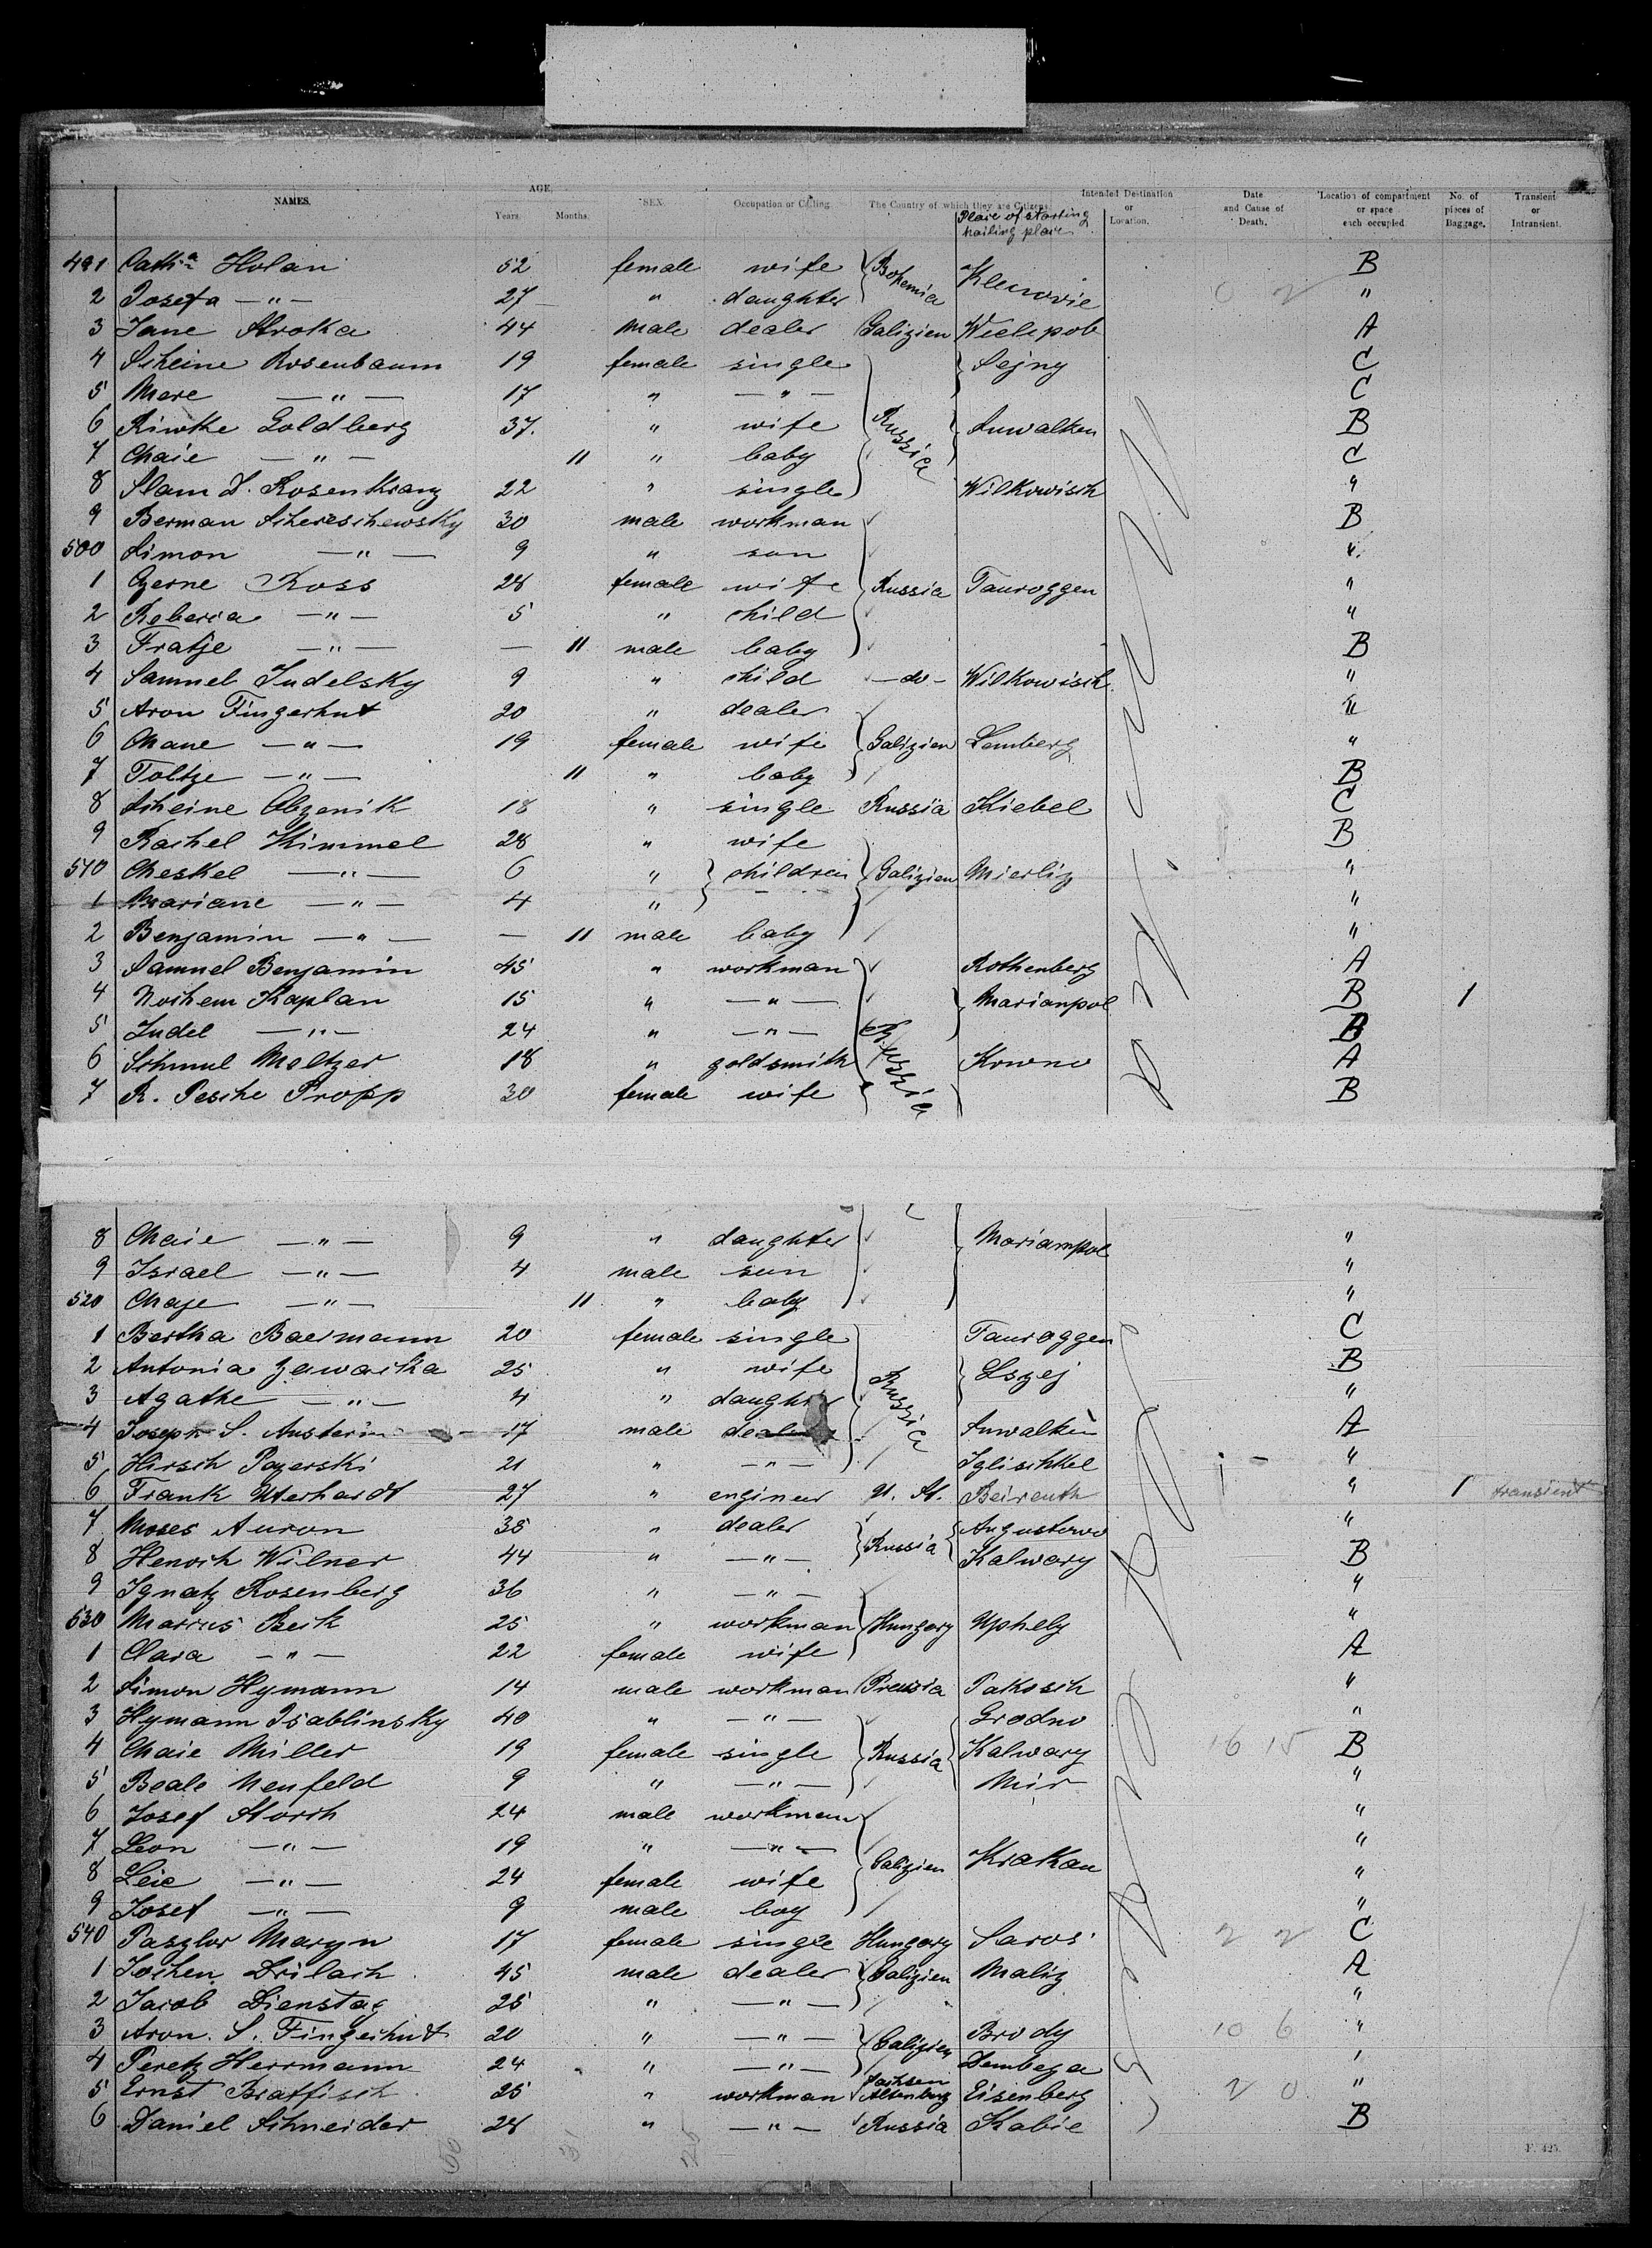 NAMES. AGE. Years. Months. SEX. Occupation or Calling. The Country of which they are Citizens. Intended Destination or Location. Date and Cause of Death. Location of compartment or space each occupied No. of pieces of Baggage. Transient or Intransient.
Place of starting
hailing place
491 Cathna Holan 52 female wife Bohemia Klenovic B
2 Josefa —"— 27 " daughter "
3 Jane Stroka 44 male dealer Galizien Wielepob A
4 Scheine Rosenbaum 19 female single Sejny C
5 Mere —"— 17 " —"— C
6 Riwke Goldberg 37. " wife Russia Suwalken B
7 Chaie —"— 11 " baby C
8 Slam S. Rosenkranz 22 " single Wilkowisch "
9 Berman Schereschewsky 30 male workman B
500 Simon —"— 9 " son "
1 Czerne Ross 28 female wife Russia Tauroggen "
2 Reberia —"— 5 " child "
3 Fratje —"— — 11 male baby B
4 Samuel Judelsky 9 " child —do— Wilkowisch "
5 Aron Fingerhut 20 " dealer "
6 Chane —"— 19 female wife Galizien Lemberg "
7 Toltze —"— 11 " baby B
8 Scheine Abzenik 18 " single Russia Kiebel C
9 Rachel Kimmel 28 " wife B
510 Cheskel —"— 6 " children Galizien Mierliz "
1 Mariane —"— 4 " "
2 Benjamin —"— — 11 male baby "
3 Samuel Benjamin 45 " workman Rothenberg A
4 Nochem Kaplan 15 " —"— Marianpol B 1
5 Judel —"— 24 " —"— Russia B
6 Schmul Meltzer 18 " goldsmith Kowno A
7 R. Pesche Propp 30 female wife B
8 Chaie —"— 9 " daughter Mariampol "
9 Israel —"— 4 male son "
520 Chaje —"— 11 " baby "
1 Bertha Baermann 20 female single Tauroggen C
2 Antonia Zawacka 25 " wife Eszej B
3 Agathe —"— 4 " daughter Russia "
4 Joseph S. Austerin 17 male dealer Suwalken A
5 Hirsch Pozerski 21 " —"— Iglischkel "
6 Frank Uterhardt 27 " engineer U. St. Beireuth " 1 transient
7 Moses Auron 35 " dealer Augustowo "
8 Henoch Wilner 44 " —"— Russia Kalwary B
9 Ignatz Rosenberg 36 " —"— "
530 Marcus Beck 25 " workman Hungary Uphely "
1 Clara —"— 22 female wife A
2 Simon Hymann 14 male workman Preussia Pakosch "
3 Hymann Isablinsky 40 " —"— Grodno "
4 Chaie Miller 19 female single Russia Kalwary 16 15 B
5 Beale Neufeld 9 " —"— Mir "
6 Josef Storch 24 male workman "
7 Leon —"— 19 " —"— Galizien Krakau "
8 Leie —"— 24 female wife "
9 Josef —"— 9 male boy "
540 Paszlor Maryn 17 female single Hungary Saros 2 2 C
1 Jochen Drilach 45 male dealer Galizien Maliz A
2 Jacob Dienstag 25 " —"— "
3 Aron. S. Fingerhut 20 " —"— Galizien Brody 10 6 "
4 Peretz Herrmann 24 " —"— Dembeza "
5 Ernst Bratfisch 25 " workman Sachsen Altenburg Eisenberg 2 0 "
6 Daniel Schneider 28 " —"— Russia Kabie B
F. 425.